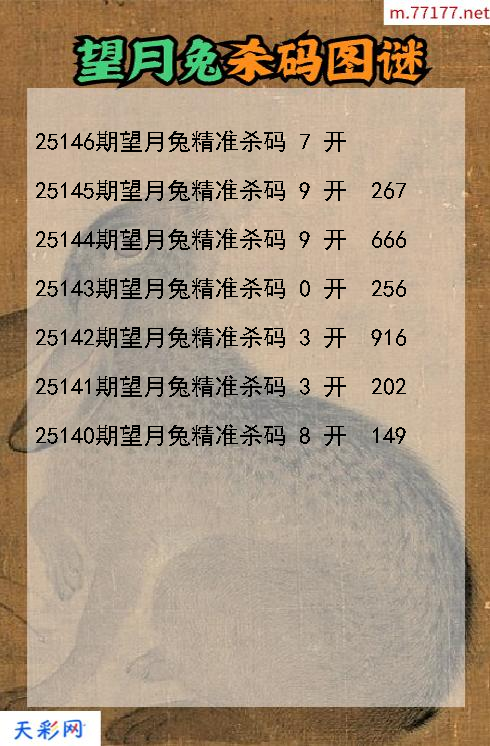 m.77177.net
望月兔杀码图谜
25146期望月兔精准杀码 7 开
25145期望月兔精准杀码 9 开 267
25144期望月兔精准杀码 9 开 666
25143期望月兔精准杀码 0 开 256
25142期望月兔精准杀码 3 开 916
25141期望月兔精准杀码 3 开 202
25140期望月兔精准杀码 8 开 149
天彩网